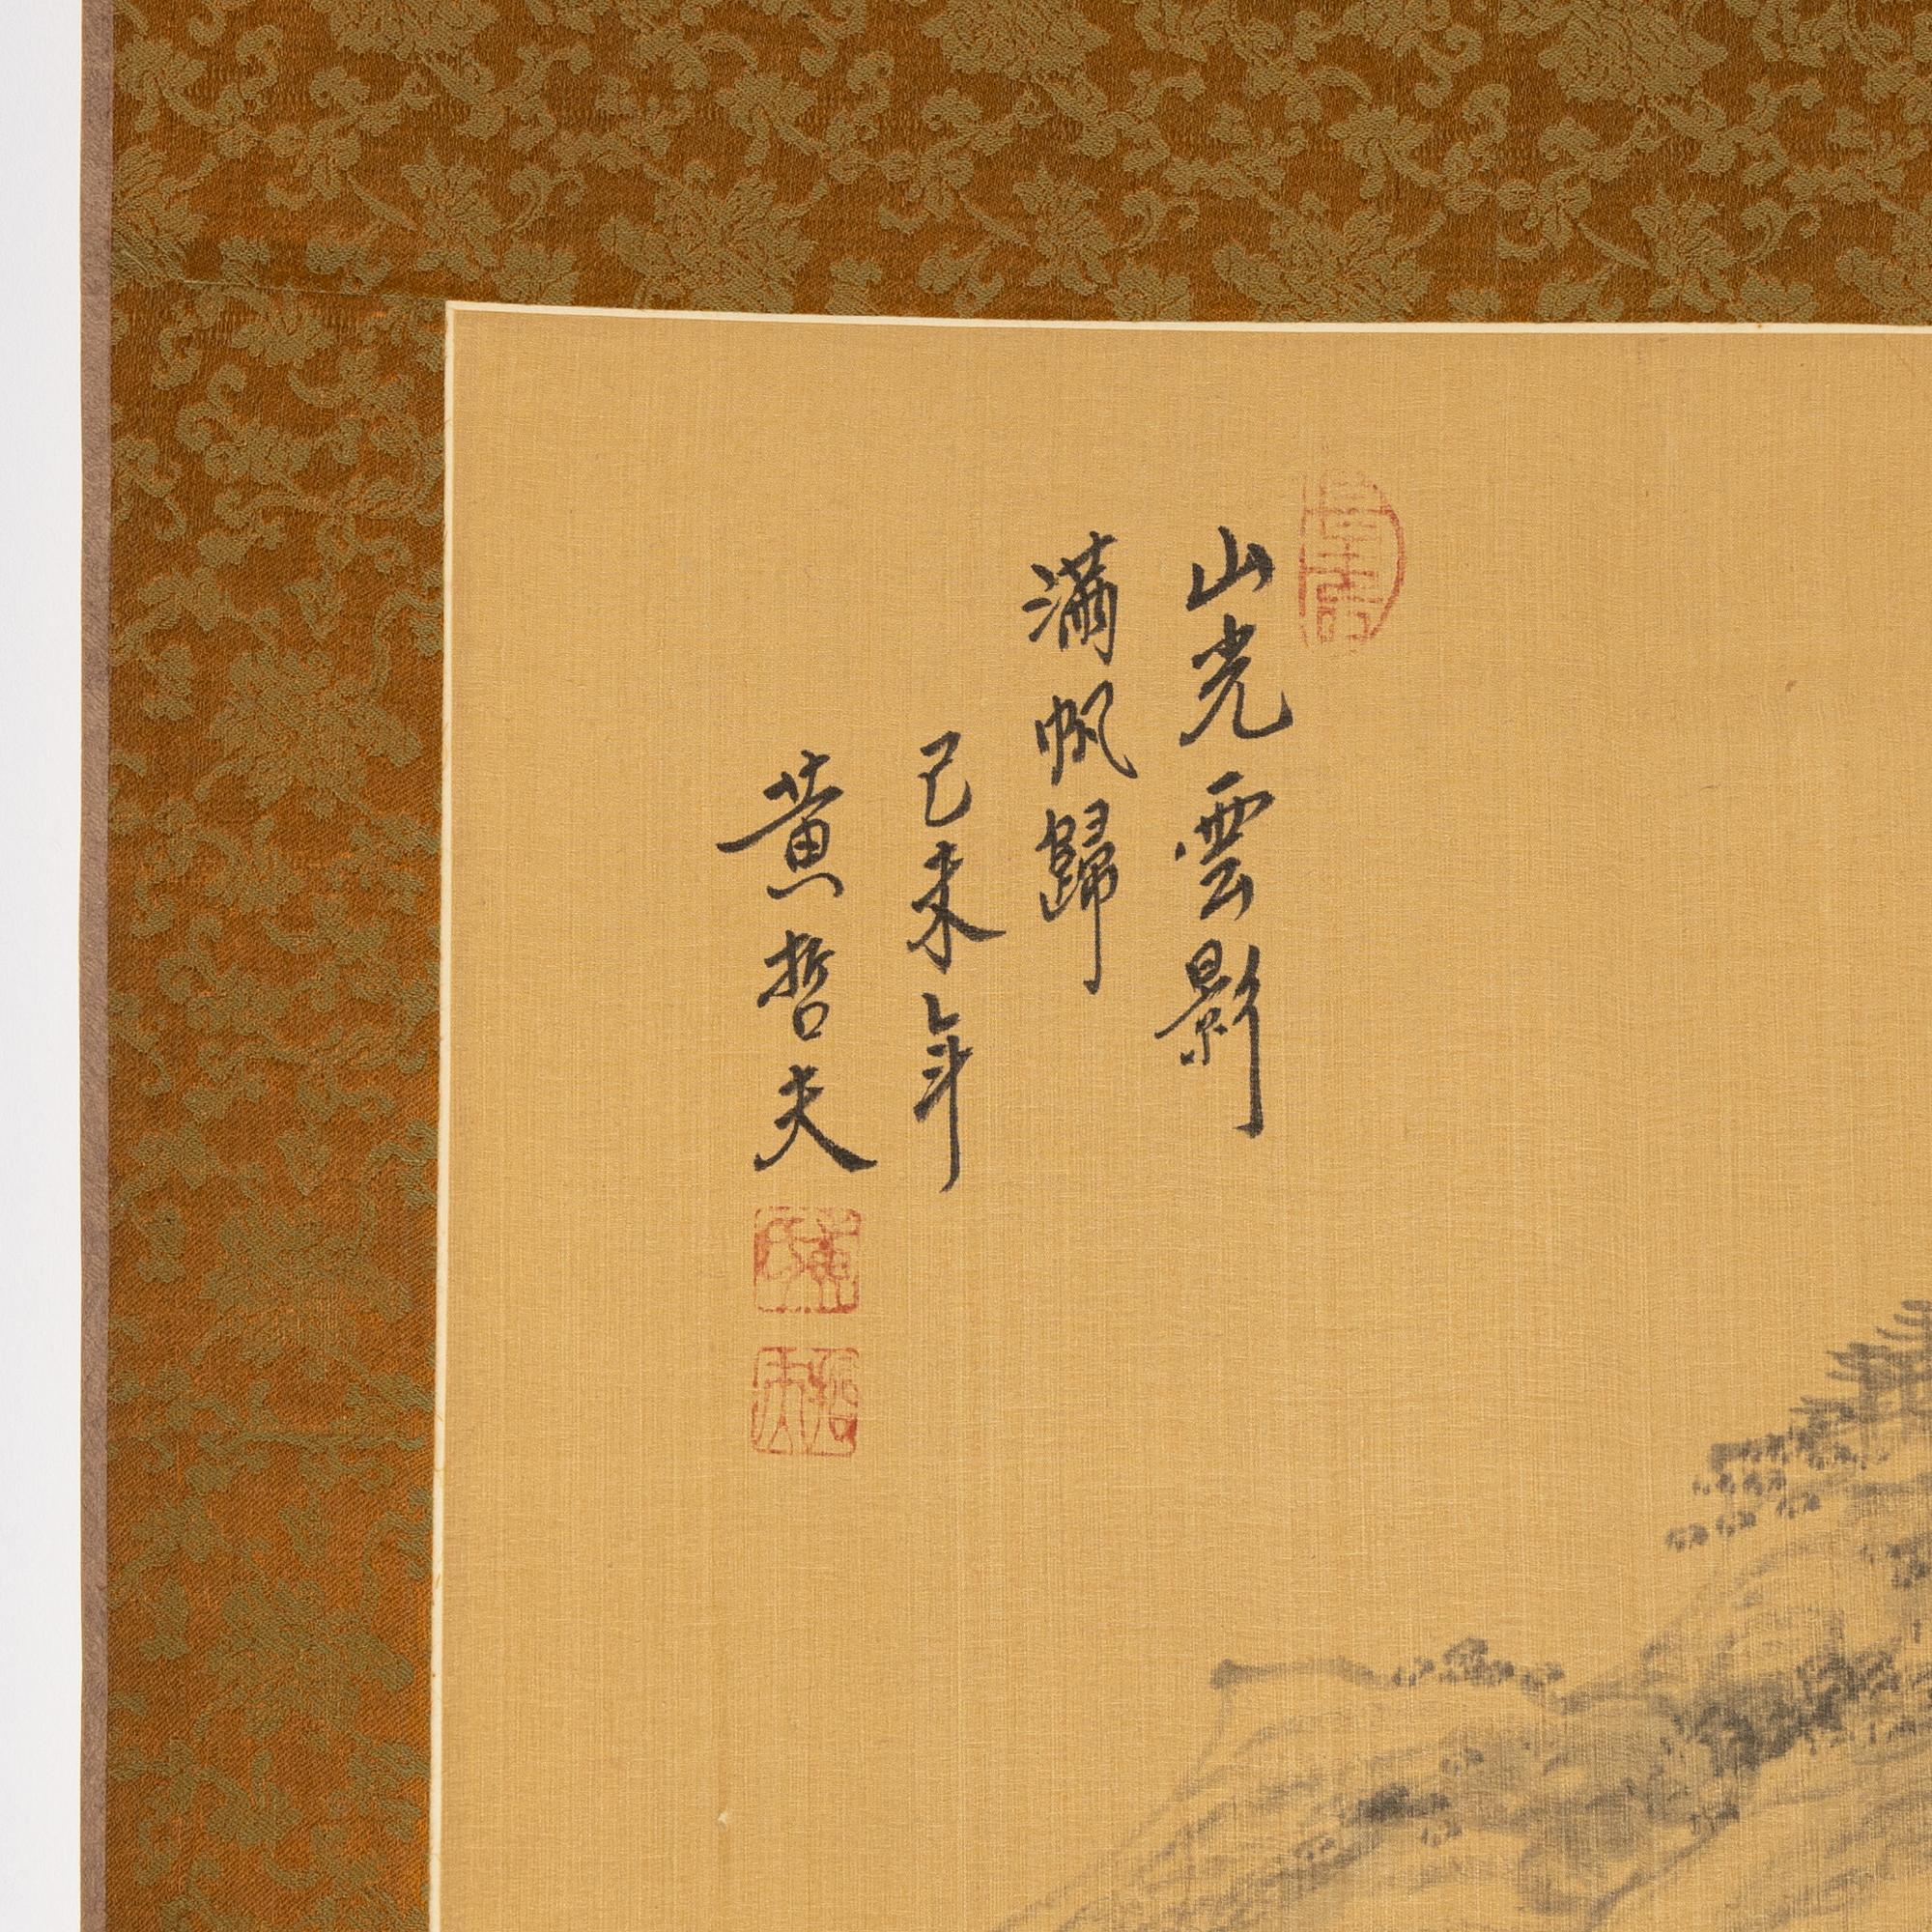 山光雲影
滿帆歸
己未年
黃哲夫